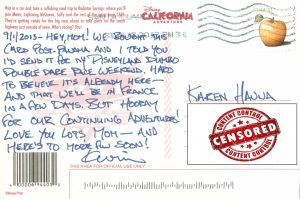 Hop in a car and take a rollicking road trip to Radiator Springs, where you'll
join Mater, Lightning McQueen, Sally and the rest of
They're getting ready for the big race about to take place on the tenth
highway just outside of town. Who's racing? You!
Disney
CALIFORNIA
ADVENTURE
9/1/2013 - HEY, MOM! WE BOUGHT THIS
CARD POST-PANAMA AND I TOLD YOU
I'D SEND IT FOR MY DISNEYLAND DUMBO
DOUBLE DARE RACE WEEKEND. HARD
TO BELIEVE IT'S ALREADY HERE -
AND THAT WE'LL BE IN FRANCE
IN A FEW DAYS. BUT HOORAY
FOR OUR CONTINUING ADVENTURES!
LOVE YOU LOTS MOM - AND
HERE'S TO MORE FUN SOON!
Kevin
KAREN HANNA
CONTENT CONTROL
CENSORED
CONTENT CONTROL
THIS AREA FOR OFFICIAL USE ONLY
©Disney/Pixar